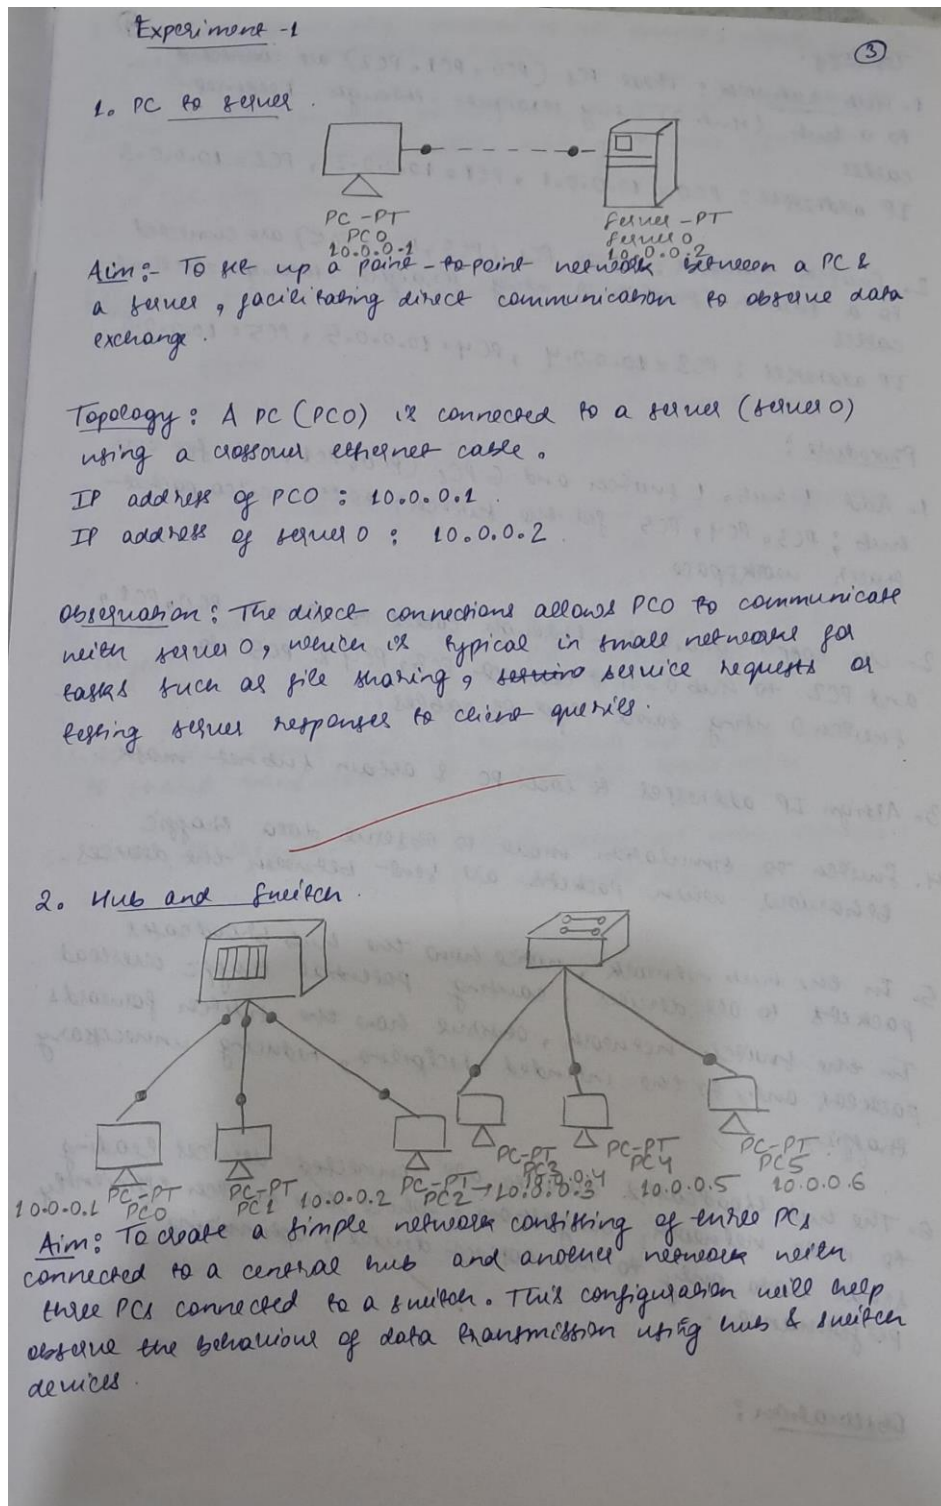 Experiment - 1
3
1. PC to server.
PC-PT
PC0
10.0.0.1
Server-PT
Server 0
10.0.0.2
Aim:- To set up a point-to-point network between a PC &
a server, facilitating direct communication to observe data
exchange.
Topology: A PC (PC0) is connected to a server (server 0)
using a crossover ethernet cable.
IP address of PC0 : 10.0.0.1
IP address of server 0 : 10.0.0.2
Observation: The direct connections allows PC0 to communicate
with server 0, which is typical in small networks for
tasks such as file sharing, service requests or
testing server responses to client queries.
2. Hub and Switch.
10.0.0.1 PC-PT
PC0
PC-PT
PC1 10.0.0.2
PC-PT
PC2 → 10.0.0.3
PC-PT
PC3
10.0.0.4
PC-PT
PC4
10.0.0.5
PC-PT
PC5
10.0.0.6
Aim: To create a simple network consisting of three PCs
connected to a central hub and another network with
three PCs connected to a switch. This configuration will help
observe the behaviour of data transmission using hub & switch
devices.